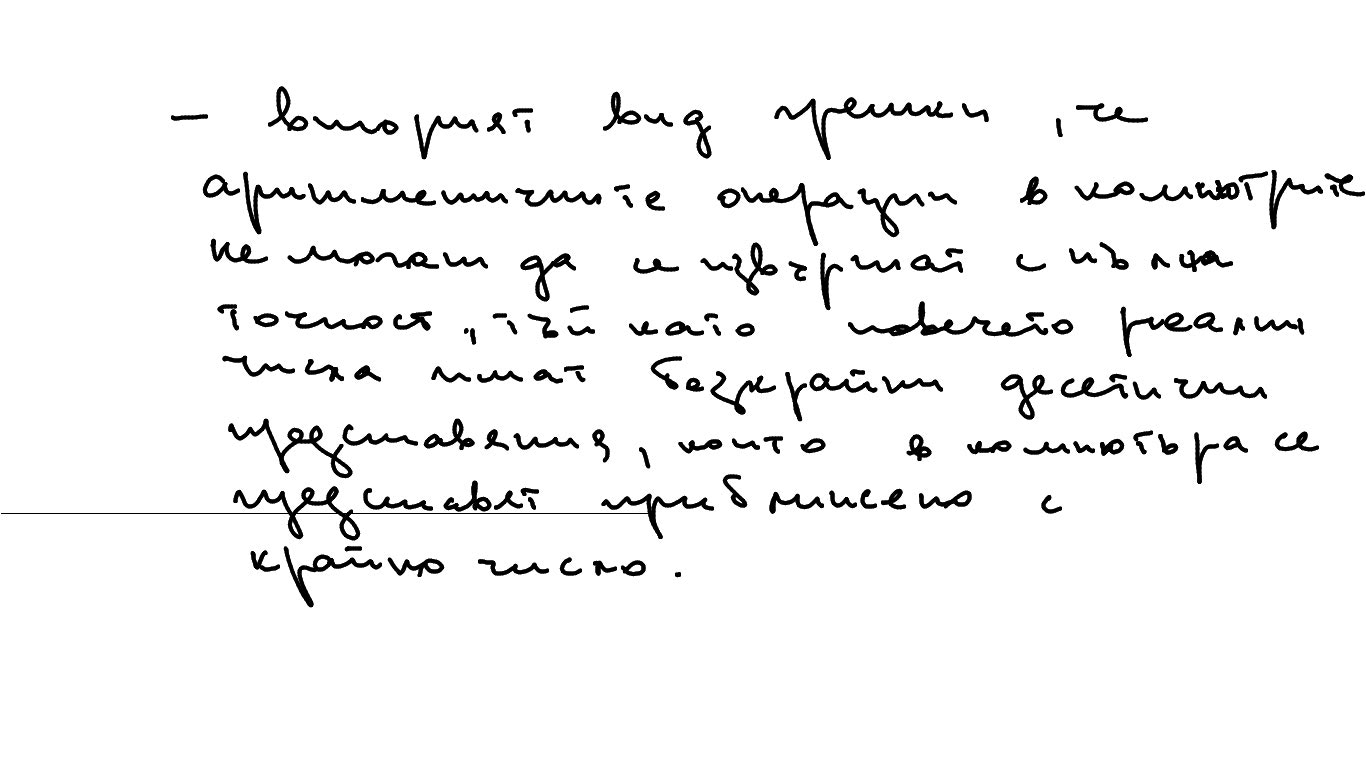 - вторият вид грешки, че
аритметичните операции в компютрите
не могат да се извършат с пълна
точност, тъй като повечето реални
числа имат безкрайни десетични
представяния, които в компютъра се
представят приблизено с
крайно число.